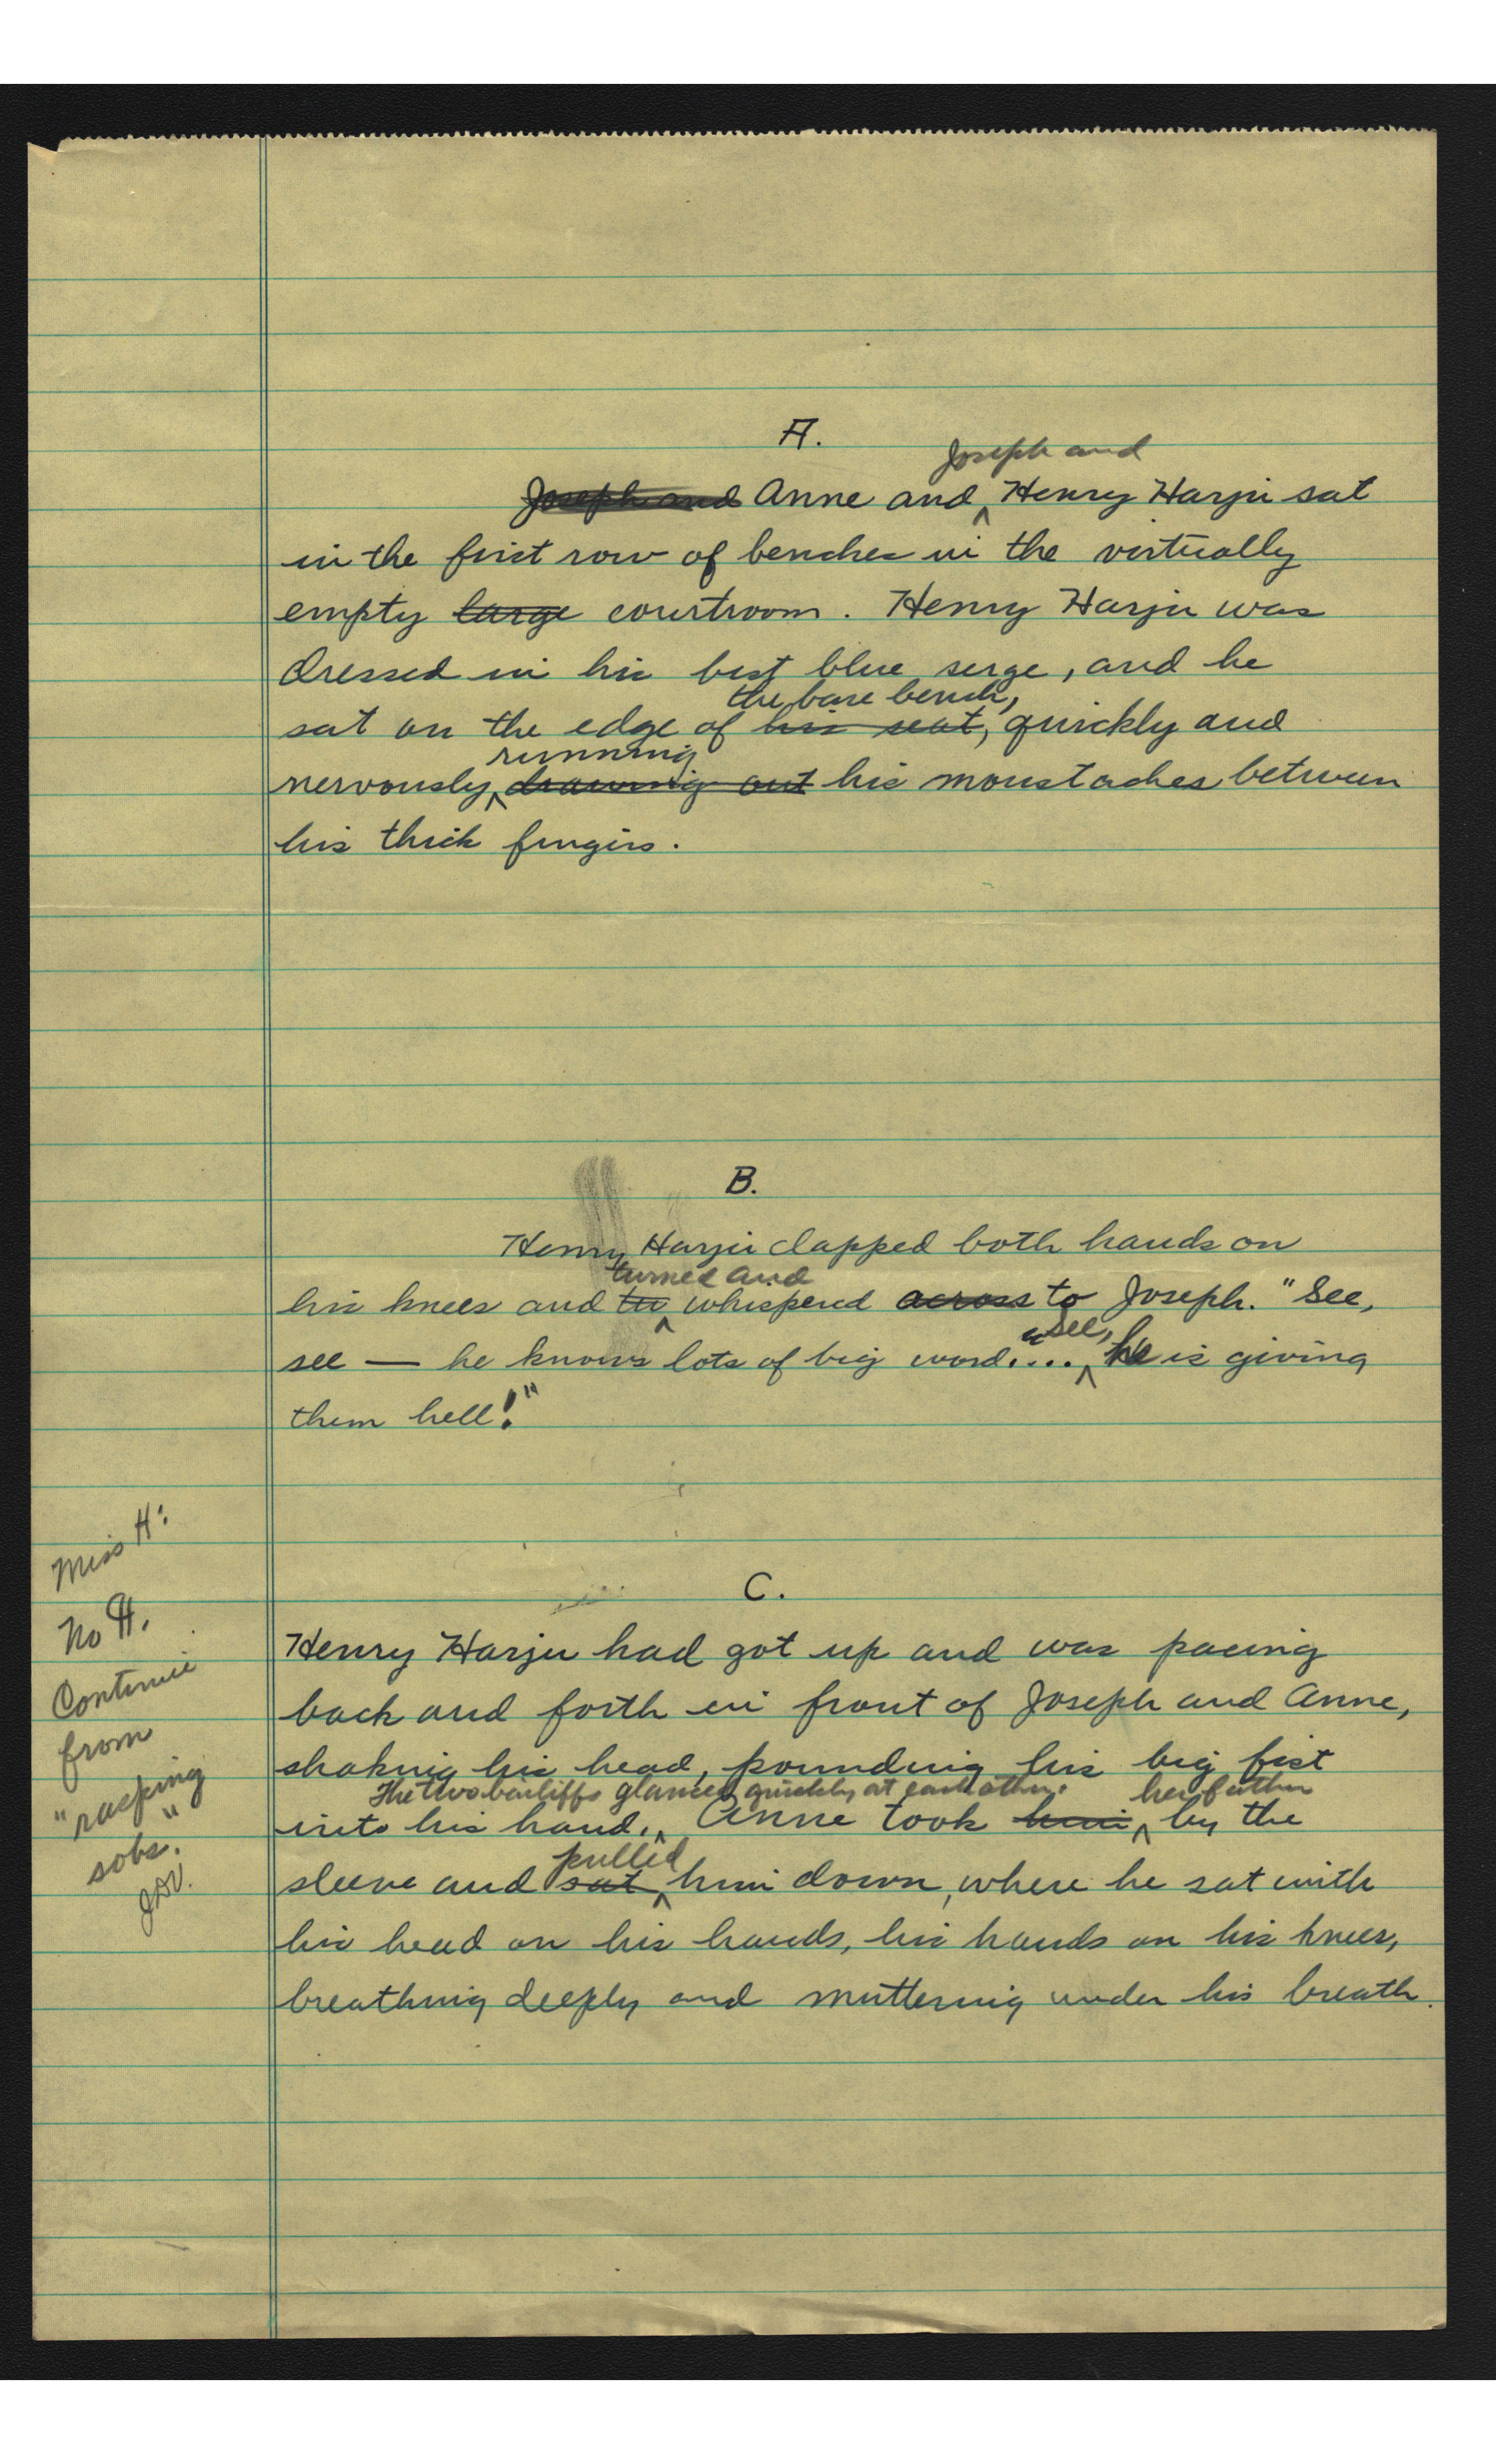 A.
Joseph and
Joseph and Anne and ^ Henry Harju sat
in the first row of benches in the virtually
empty large courtroom. Henry Harju was
dressed in his best blue serge, and he
the bare bench,
sat on the edge of his seat, quickly and
running
nervously, ^ drawing out his moustaches between
his thick fingers.
B.
Henry Harju clapped both hands on
turned and
his knees and tu ^ whispered across to Joseph. "See,
See,
see — he knows lots of big word.... ^ he is giving
them hell!"
C.
Henry Harju had got up and was pacing
back and forth in front of Joseph and Anne,
shaking his head, pounding his big fist
The two bailiffs glanced quickly at each other. her father
into his hand. ^ Anne took him ^ by the
pulled
sleeve and sat ^ him down, where he sat with
his head on his hands, his hands on his knees,
breathing deeply and muttering under his breath.
Miss H:
No ¶.
Continue
from
"rasping
sobs."
JDV.